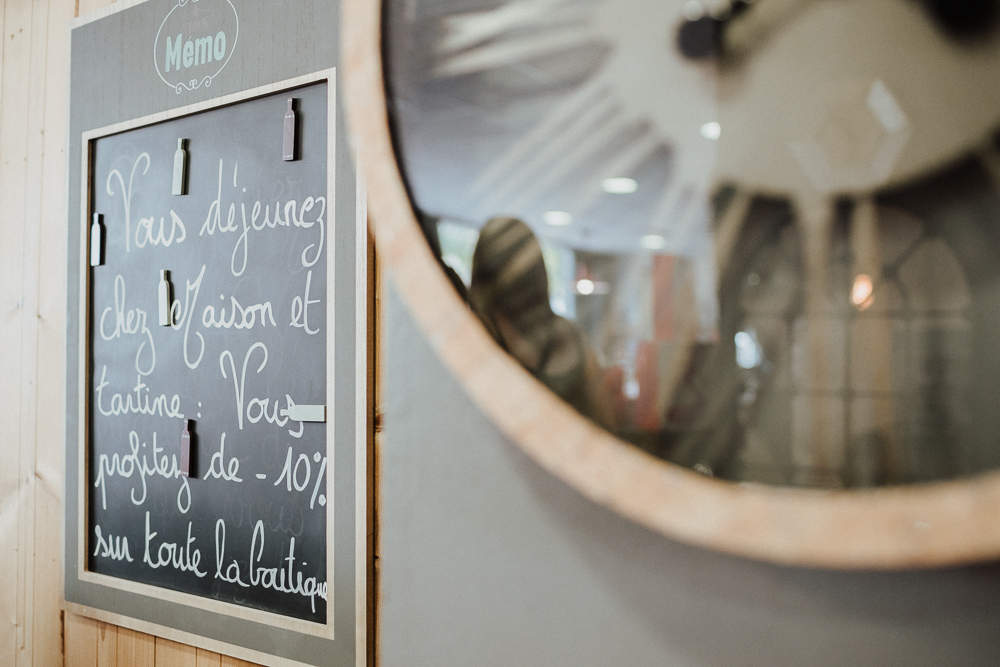 Mémo
Vous déjeunez
chez Maison et
tartine : Vous
profitez de - 10%
sur toute la boutique